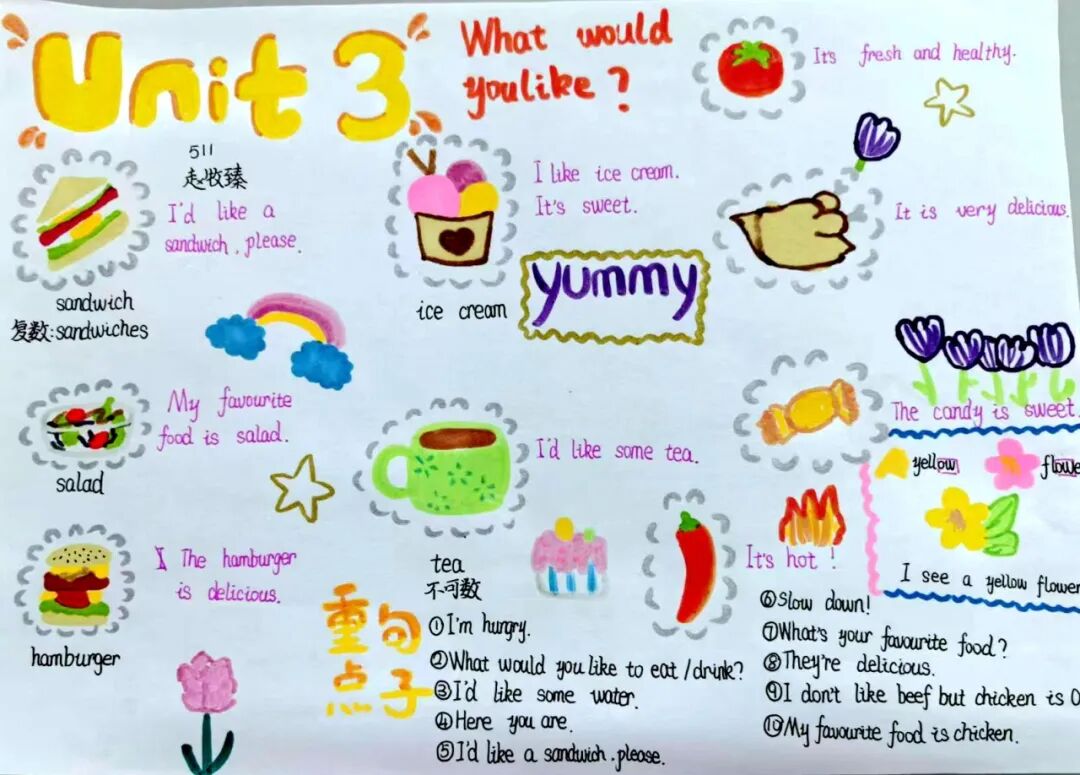 Unit 3
What would
youlike?
It's fresh and healthy.
511
I'd like a
sandwich, please.
sandwich
复数:sandwiches
I like ice cream.
It's sweet.
ice cream
yummy
It is very delicious.
My favourite
food is salad.
salad
I'd like some tea.
tea
不可数
The candy is sweet.
yellow
I see a yellow flower
The hamburger
is delicious.
hamburger
It's hot!
重句
点子
①I'm hungry.
②What would you like to eat/drink?
③I'd like some water.
④Here you are.
⑤I'd like a sandwich, please.
⑥Slow down!
⑦What's your favourite food?
⑧They're delicious.
⑨I don't like beef but chicken is
⑩My favourite food is chicken.